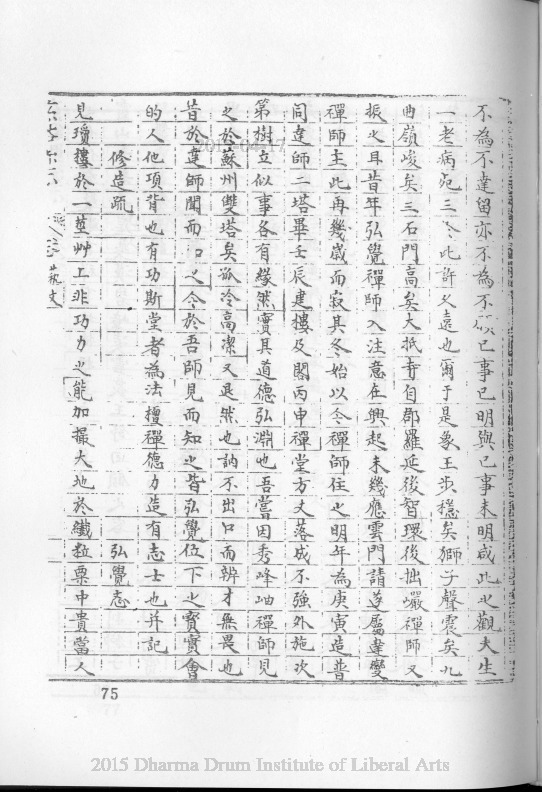 不為不達留亦不為不 已事已明與已事未明咸此之觀夫生
一老病死三 此許久遠也爾于是象王步穩矣獅子聲震矣九
曲嶺峻矣三石門高矣大抵寺自郡羅延後智環後拙巖禪師又
振之耳昔年弘覺禪師入注意在興起未幾應雲門請遂屬達變
禪師主此再幾歲而寂其冬始以令禪師住之明年為庚寅造普
同達師二塔畢壬辰建樓及閣丙申禪堂方丈落成不強外施次
第樹立似事各有緣然實具道德弘淵也吾嘗因秀峰岫禪師見
之於蘇州雙塔矣孤冷高潔又退然也訥不出口而辨才無畏也
昔於達師聞而 之今於吾師見而知之皆弘覺位下之寶實會
的人他項背也有功斯堂者為法檀禪德力造有志士也并記
修造疏 弘覺忞
見瓊樓於一莖艸上非功力之能加撮大地於纖粒粟中貴當人
藝文
75
2015 Dharma Drum Institute of Liberal Arts